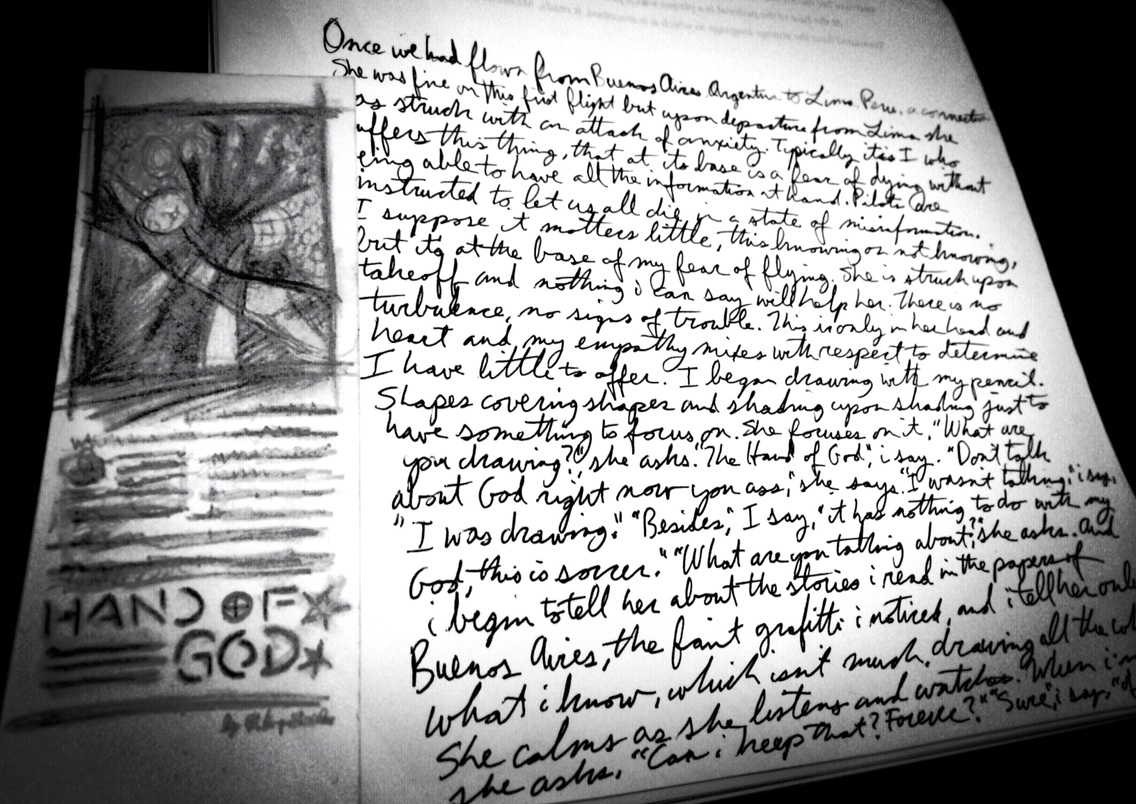 Once we had flown from Buenos Aires Argentina to Lima Peru. a connection
She was fine on this first flight but upon departure from Lima she
as struck with an attack of anxiety. Typically it is I who
uffers this thing, that at its base is a fear of dying without
eing able to have all the information at hand. Pilots are
instructed to let us all die in a state of misinformation.
I suppose it matters little, this knowing or not knowing,
but it's at the base of my fear of flying. She is struck upon
takeoff and nothing i can say will help her. There is no
turbulence, no signs of trouble. This is only in her head and
heart and my empathy mixes with respect to determine
I have little to offer. I began drawing with my pencil.
Shapes covering shapes and shading upon shading just to
have something to focus on. She focuses on it. "What are
you drawing?" she asks. "The Hand of God", i say. "Don't talk
about God right now you ass," she says. "I wasn't talking," i say,
"I was drawing." "Besides," I say, "it has nothing to do with my
God, this is soccer." "What are you talking about?" she asks. and
i begin to tell her about the stories i read in the papers of
Buenos Aires, the faint grafitti i noticed, and i tell her only
what i know, which isn't much, drawing all the
She calms as she listens and watches. When i'm
she asks, "Can i keep that? Forever?" "Sure," i say,
HAND OF
GOD
by